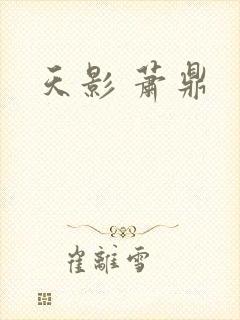 天影 萧鼎
崔離雪